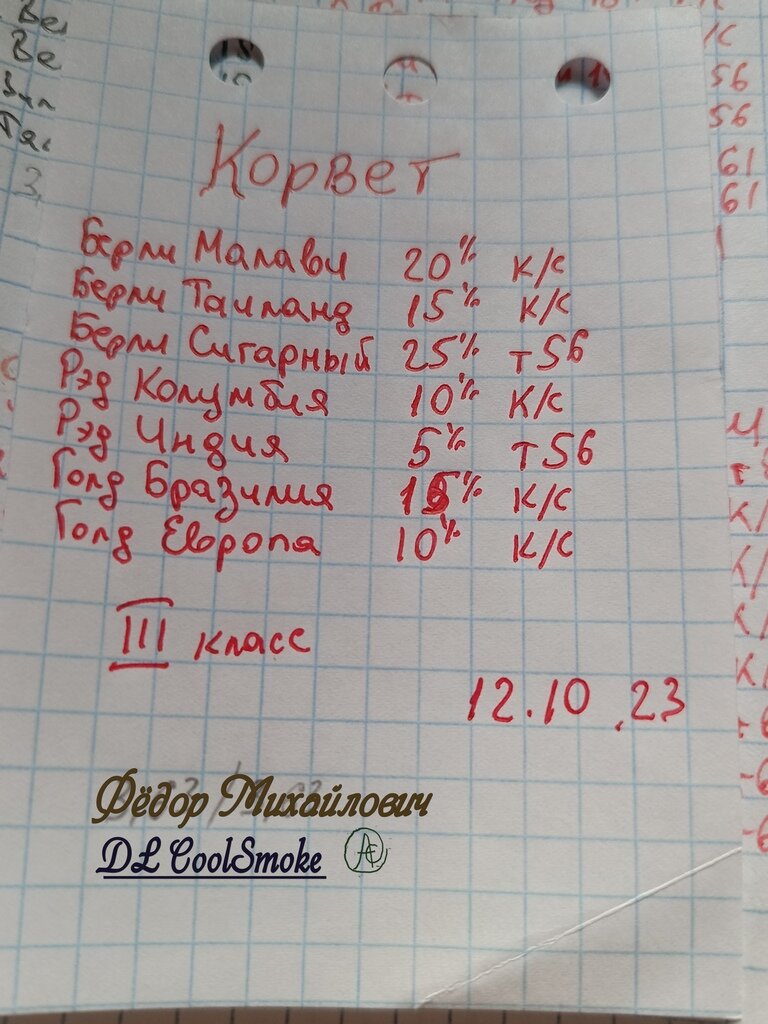 Корвет
Берли Малави 20% к/с
Берли Таиланд 15% к/с
Берли Сигарный 25% т56
Рэд Колумбия 10% к/с
Рэд Индия 5% т56
Голд Бразилия 15% к/с
Голд Европа 10% к/с
III класс
12.10.23
Фёдор Михайлович
DL CoolSmoke
56
56
61
61